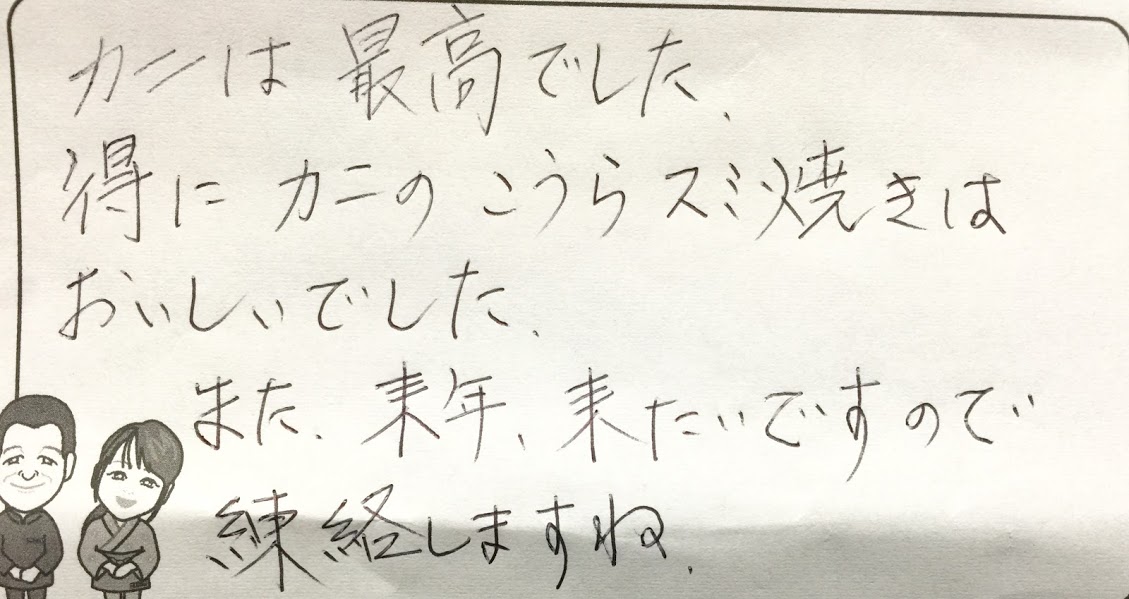 カニは最高でした、
得にカニのこうらスミ焼きは
おいしいでした、
また、来年、来たいですので
練絡しますね、